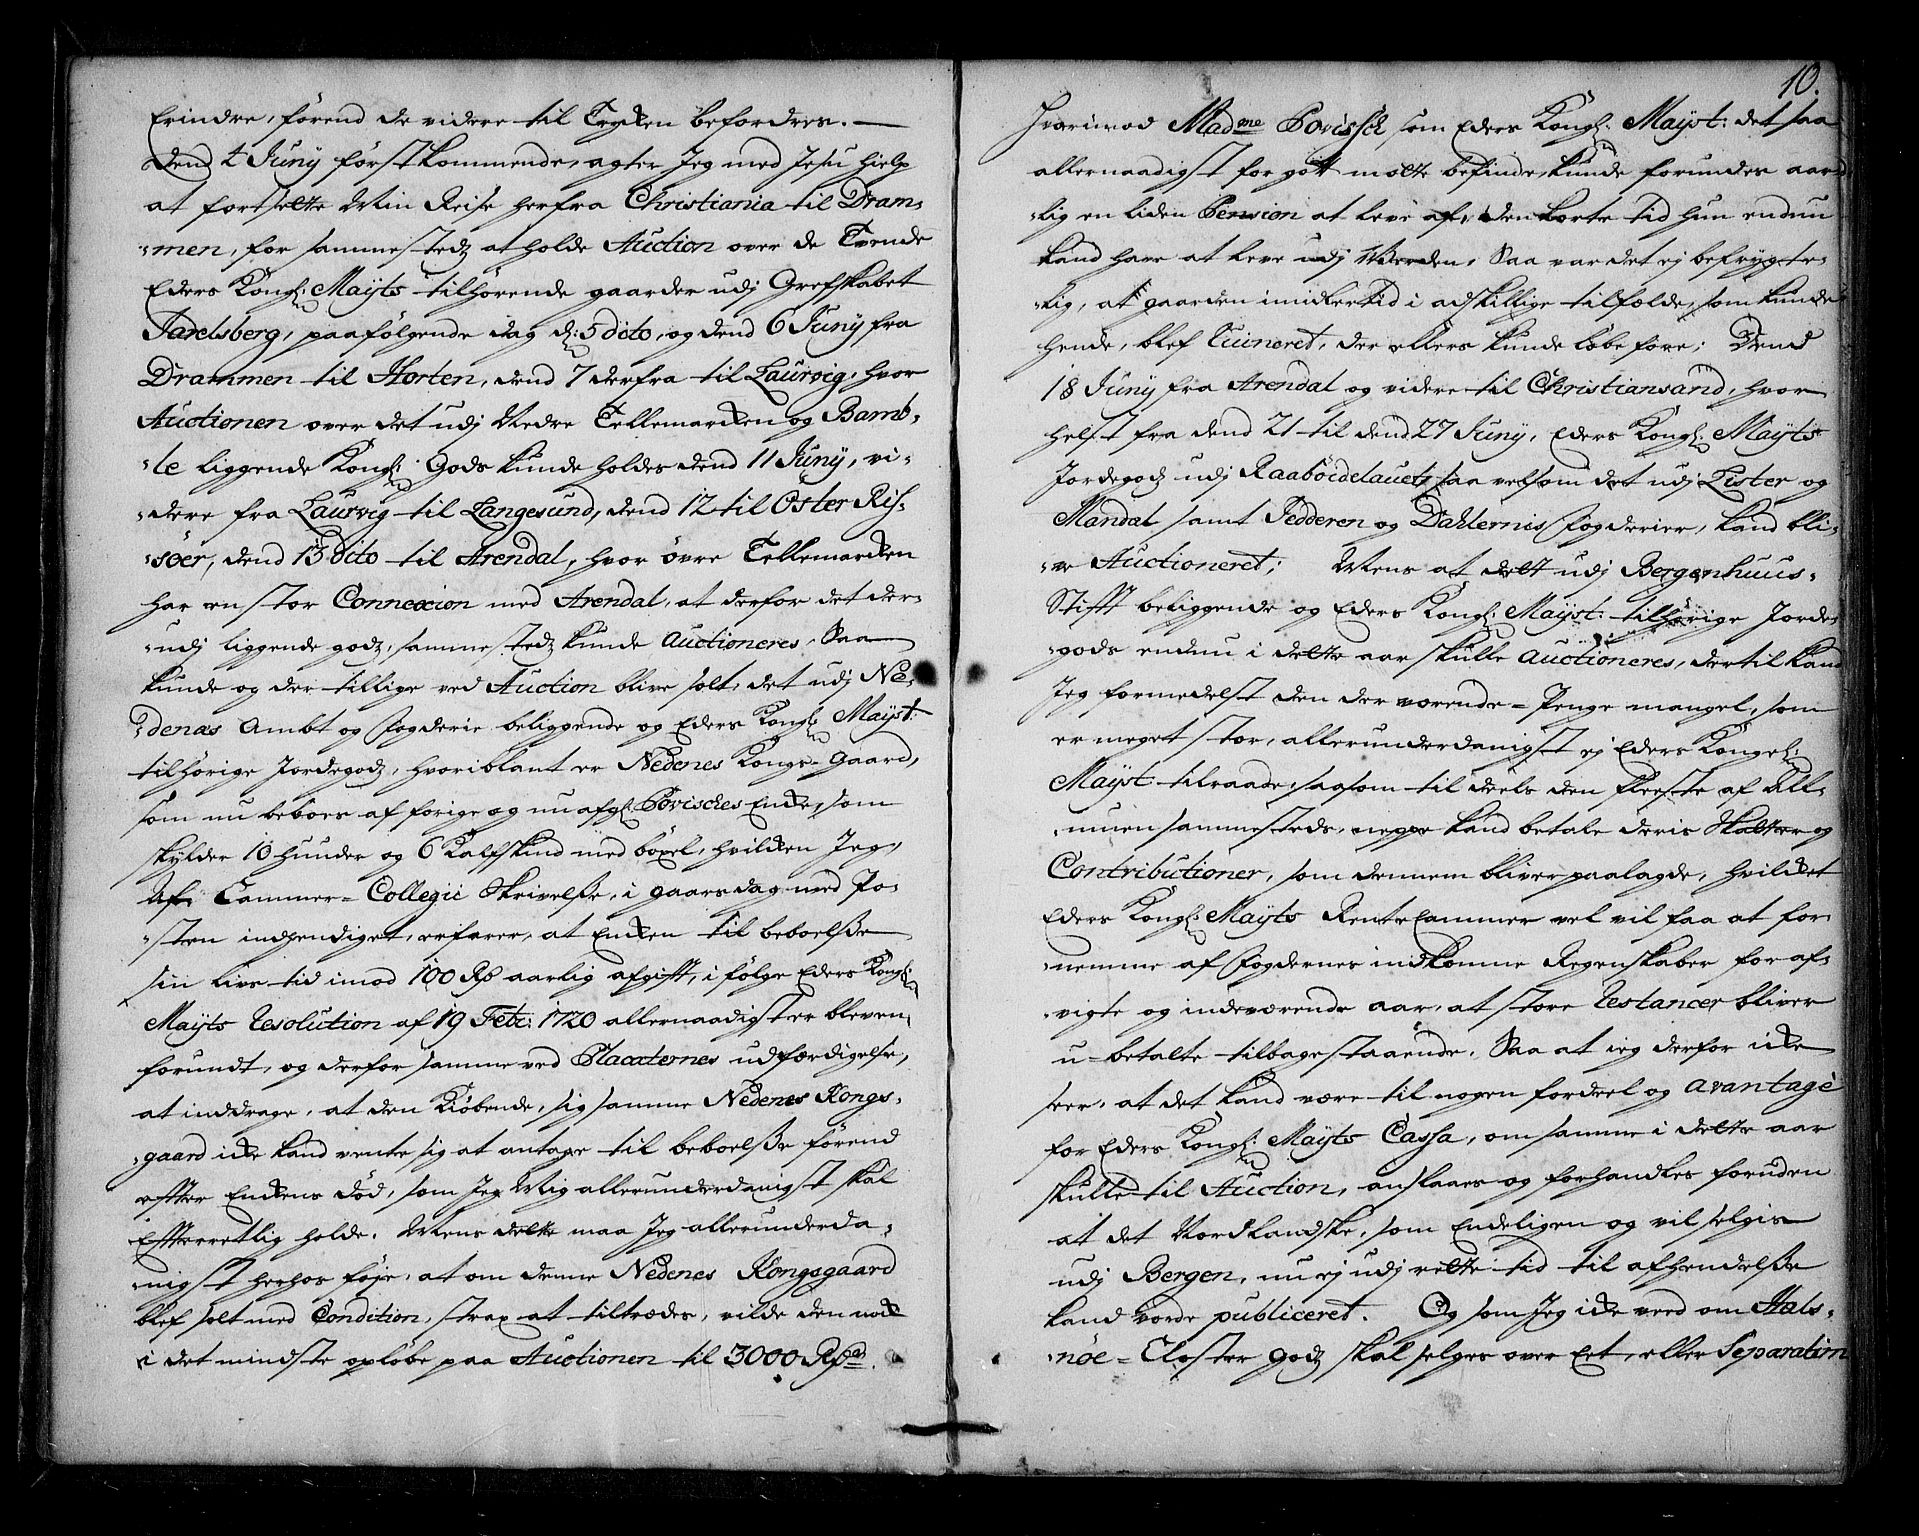 Erindre, förend de videre til Trÿcken befordres. —
Dend 4 Junÿ förstkommende, agter Jeg med Jesu hielp
at fortsette Min Reise herfra Christiania til Dram-
-men, for sammestedz at holde Auction over de Tvende
Eders Kongl: Maÿts tilhörende gaarder udj Grefskabet
Jarelsberg, paafölgende dag d: 5 dito, og dend 6 Junÿ fra
Drammen til Horten, dend 7 derfra til Laurvig, hvor
Auctionen over det udj Nedre Tellemarcken og Bamb-
-le liggende Kongl: Gods kunde holdes dend 11 Junÿ, vi-
-dere fra Laurvig til Langesund, dend 12 til Öster Riis-
-söer, dend 13 dito til Arendal, hvor övre Tellemarcken
har en stor Connexion med Arendal, at derfor det der-
-udj liggende godz, sammestedz kunde Auctioneres, Saa
kunde og der tillige ved Auction blive solt, det udj Ne-
-denæs Ambt og fogderie beliggende og Eders Kongl: Maÿst:
tilhörige Jordegodz, hvoriblant er Nedenes Kongs-Gaard,
som nu beboes af forige og nu afgl: Povisches Encke, som
skÿlder 10 hunder og 6 Kalfskind med böxel, hvilcken Jeg,
Af Cammer-Collegii Skrivelße, i gaarsdag med Po-
-sten indhendiget, erfarer, at Encken til beboelße
sin livs tid imod 100 Rd aarlig afgifft, i fölge Eders Kongl:
Maÿts Resolution af 19 Febr: 1720 allernaadigst er bleven
forundt, og derfor samme ved Placaternes udfærdigelse,
at inddrage, at den Kiöbende, sig samme Nedenes Kongs-
-gaard icke kand vente sig at antage til beboelße förend
effter Enckens död, som Jeg Mig allerunderdanigst skal
Effterretlig holde. Mens dette maa Jeg allerunderda-
-nigst herhos föje, at om denne Nedenes Kongsgaard
blef solt med Condition, strax at tiltrædes, vilde den nock
i det mindste oplöbe paa Auctionen til 3000 Rdr.
10.
Hvorimod Madme Povisch som Eders Kongl: Maÿst: det saa
allernaadigst for gott motte befinde, kunde forundes aar-
-lig en liden Pension at leve af, den korte tid hun endnu
kand have at leve udj Verden, Saa var det ej befrÿgte-
-lig, at gaarden imidlertid i adskillige tilfælde, som kunde
hende, blef Ruineret, der ellers kunde löbe fore; Dend
18 Junÿ fra Arendal og videre til Christiansand, hvor
helst fra dend 21 til dend 27 Junÿ, Eders Kongl: Maÿts
Jordegodz udj Raaböidelauget, saa velsom det udj Lister og
Mandal samt Jedderen og Dahlernis fogderier, kand bli-
-ve Auctioneret; Mens at dett udj Bergenhuus-
Stifft beliggende og Eders Kongl: Maÿst: tilhörige Jorde-
-gods endnu i dette aar skulle Auctioneres, dertil kand
Jeg formedelst den der værende Penge mangel, som
er meget stor, allerunderdanigst ej Eders Kongel:
Maÿst tilraade, saasom til deels den fleeste af All-
-muen sammesteds, neppe kand betale deris Skatter og
Contributioner, som dennem bliver paalagde, hvilcket
Eders Kongl: Maÿts RenteCammer vel vil faa at for-
-nemme af fogdernes indkomne Regenskaber for af-
-vigte og indeværende aar, at store Restancer bliver
u-betalte tilbagestaaende, Saa at ieg derfor icke
seer, at det kand være til nogen fordeel og avantage
for Eders Kongl: Maÿts Cassa, om samme i dette aar
skulle til Auction, anslaaes og forhandles foruden
at det Nordlandske, som Endeligen og vil selgis
udj Bergen, nu ej udj rette tid til afhendelße
kand vorde publiceret. Og som Jeg icke veed om Hals-
-nöe-Closter godz skal selges over Eet, eller Separatim